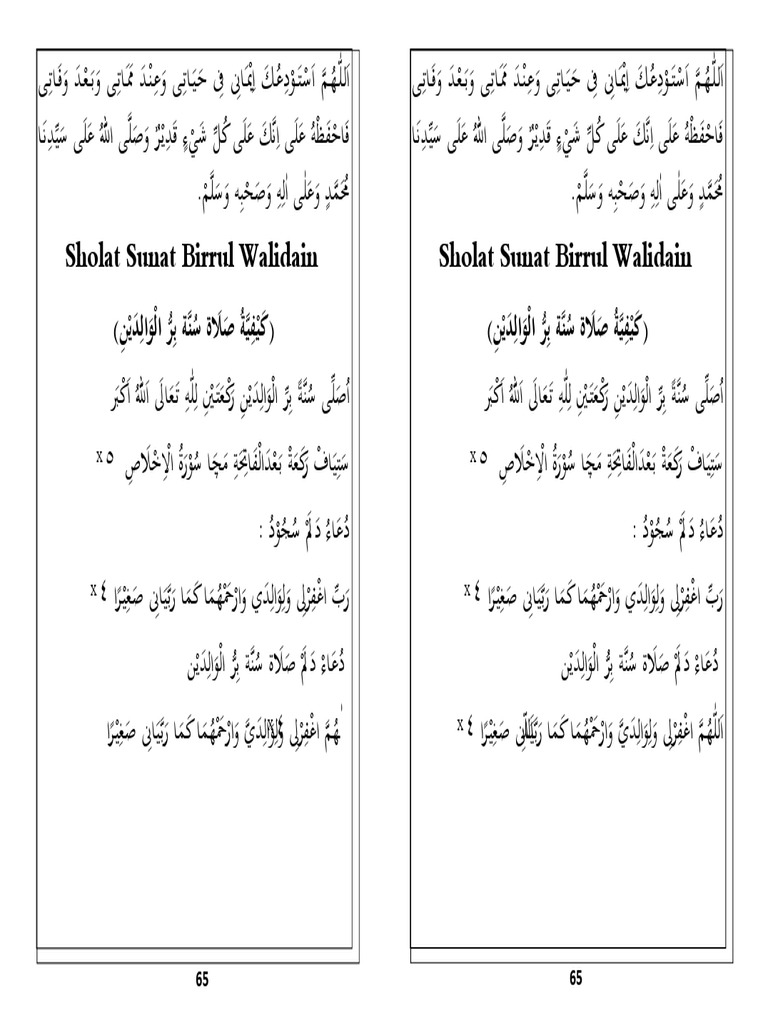 اَللّٰهُمَّ اَسْتَوْدِعُكَ اِيْمَانِى فِى حَيَاتِى وَعِنْدَ مَمَاتِى وَبَعْدَ وَفَاتِى
فَاحْفَظْهُ عَلَى اِنَّكَ عَلَى كُلِّ شَيْءٍ قَدِيْرٌ وَصَلَّى اللهُ عَلَى سَيِّدِنَا
مُحَمَّدٍ وَعَلٰى اٰلِهِ وَصَحْبِهِ وَسَلَّمْ.
Sholat Sunat Birrul Walidain
(كَيْفِيَّةُ صَلَاة سُنَّة بِرُّ الْوَالِدَيْنِ)
اُصَلِّى سُنَّةً بِرِّ الْوَالِدَيْنِ رَكْعَتَيْنِ لِلّٰهِ تَعَالَى اَللهُ اَكْبَر
سَتِيَافْ رَكْعَةْ بَعْدَالْفَاتِحَةِ مَچَا سُوْرَةُ الْاِخْلَاصِ ٥ x
دُعَاءُ دَلَمْ سُجُوْدُ :
رَبِّ اغْفِرْلِى وَلِوَالِدَي وَارْحَمْهُمَا كَمَا رَبَّيَانِى صَغِيْرًا ٤ x
دُعَاءْ دَلَمْ صَلَاة سُنَّة بِرُّ الْوَالِدَيْن
هُمَّ اغْفِرْلِى وَلِوَالِدَيَّ وَارْحَمْهُمَا كَمَا رَبَّيَانِى صَغِيْرًا ٤ x
65
اَللّٰهُمَّ اَسْتَوْدِعُكَ اِيْمَانِى فِى حَيَاتِى وَعِنْدَ مَمَاتِى وَبَعْدَ وَفَاتِى
فَاحْفَظْهُ عَلَى اِنَّكَ عَلَى كُلِّ شَيْءٍ قَدِيْرٌ وَصَلَّى اللهُ عَلَى سَيِّدِنَا
مُحَمَّدٍ وَعَلٰى اٰلِهِ وَصَحْبِهِ وَسَلَّمْ.
Sholat Sunat Birrul Walidain
(كَيْفِيَّةُ صَلَاة سُنَّة بِرُّ الْوَالِدَيْنِ)
اُصَلِّى سُنَّةً بِرِّ الْوَالِدَيْنِ رَكْعَتَيْنِ لِلّٰهِ تَعَالَى اَللهُ اَكْبَر
سَتِيَافْ رَكْعَةْ بَعْدَالْفَاتِحَةِ مَچَا سُوْرَةُ الْاِخْلَاصِ ٥ x
دُعَاءُ دَلَمْ سُجُوْدُ :
رَبِّ اغْفِرْلِى وَلِوَالِدَي وَارْحَمْهُمَا كَمَا رَبَّيَانِى صَغِيْرًا ٤ x
دُعَاءْ دَلَمْ صَلَاة سُنَّة بِرُّ الْوَالِدَيْن
اَللّٰهُمَّ اغْفِرْلِى وَلِوَالِدَيَّ وَارْحَمْهُمَا كَمَا رَبَّيَانِى صَغِيْرًا ٤ x
65